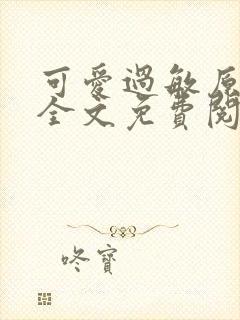 可愛過敏原
全文免費閱
咚寶